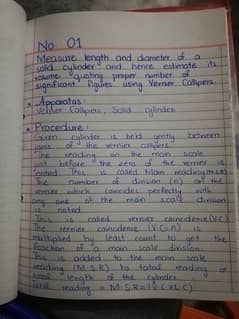 No 01
Measure length and diameter of a
solid cylinder and hence estimate its
volume quoting proper number of
significant figures using Vernier Callipers.
Apparatus:
Vernier Callipers, Solid cylinder
Procedure:
Given cylinder is held gently between
jaws of the vernier calipers.
The reading on the main scale
just before the zero of the vernier is
noted. This is called Main reading (M.S.R)
The number of division (n) on the
vernier which coincide perfectly with
any one of the main scale division
is noted
This is called vernier coincidence (V.C)
The vernier coincidence (V.C=n) is
multiplied by least count to get the
fraction of a main scale division.
This is added to the main scale
reading (M.S.R) to total reading or
length of the cylinder.
Total reading = M.S.R + (V.C x L.C)